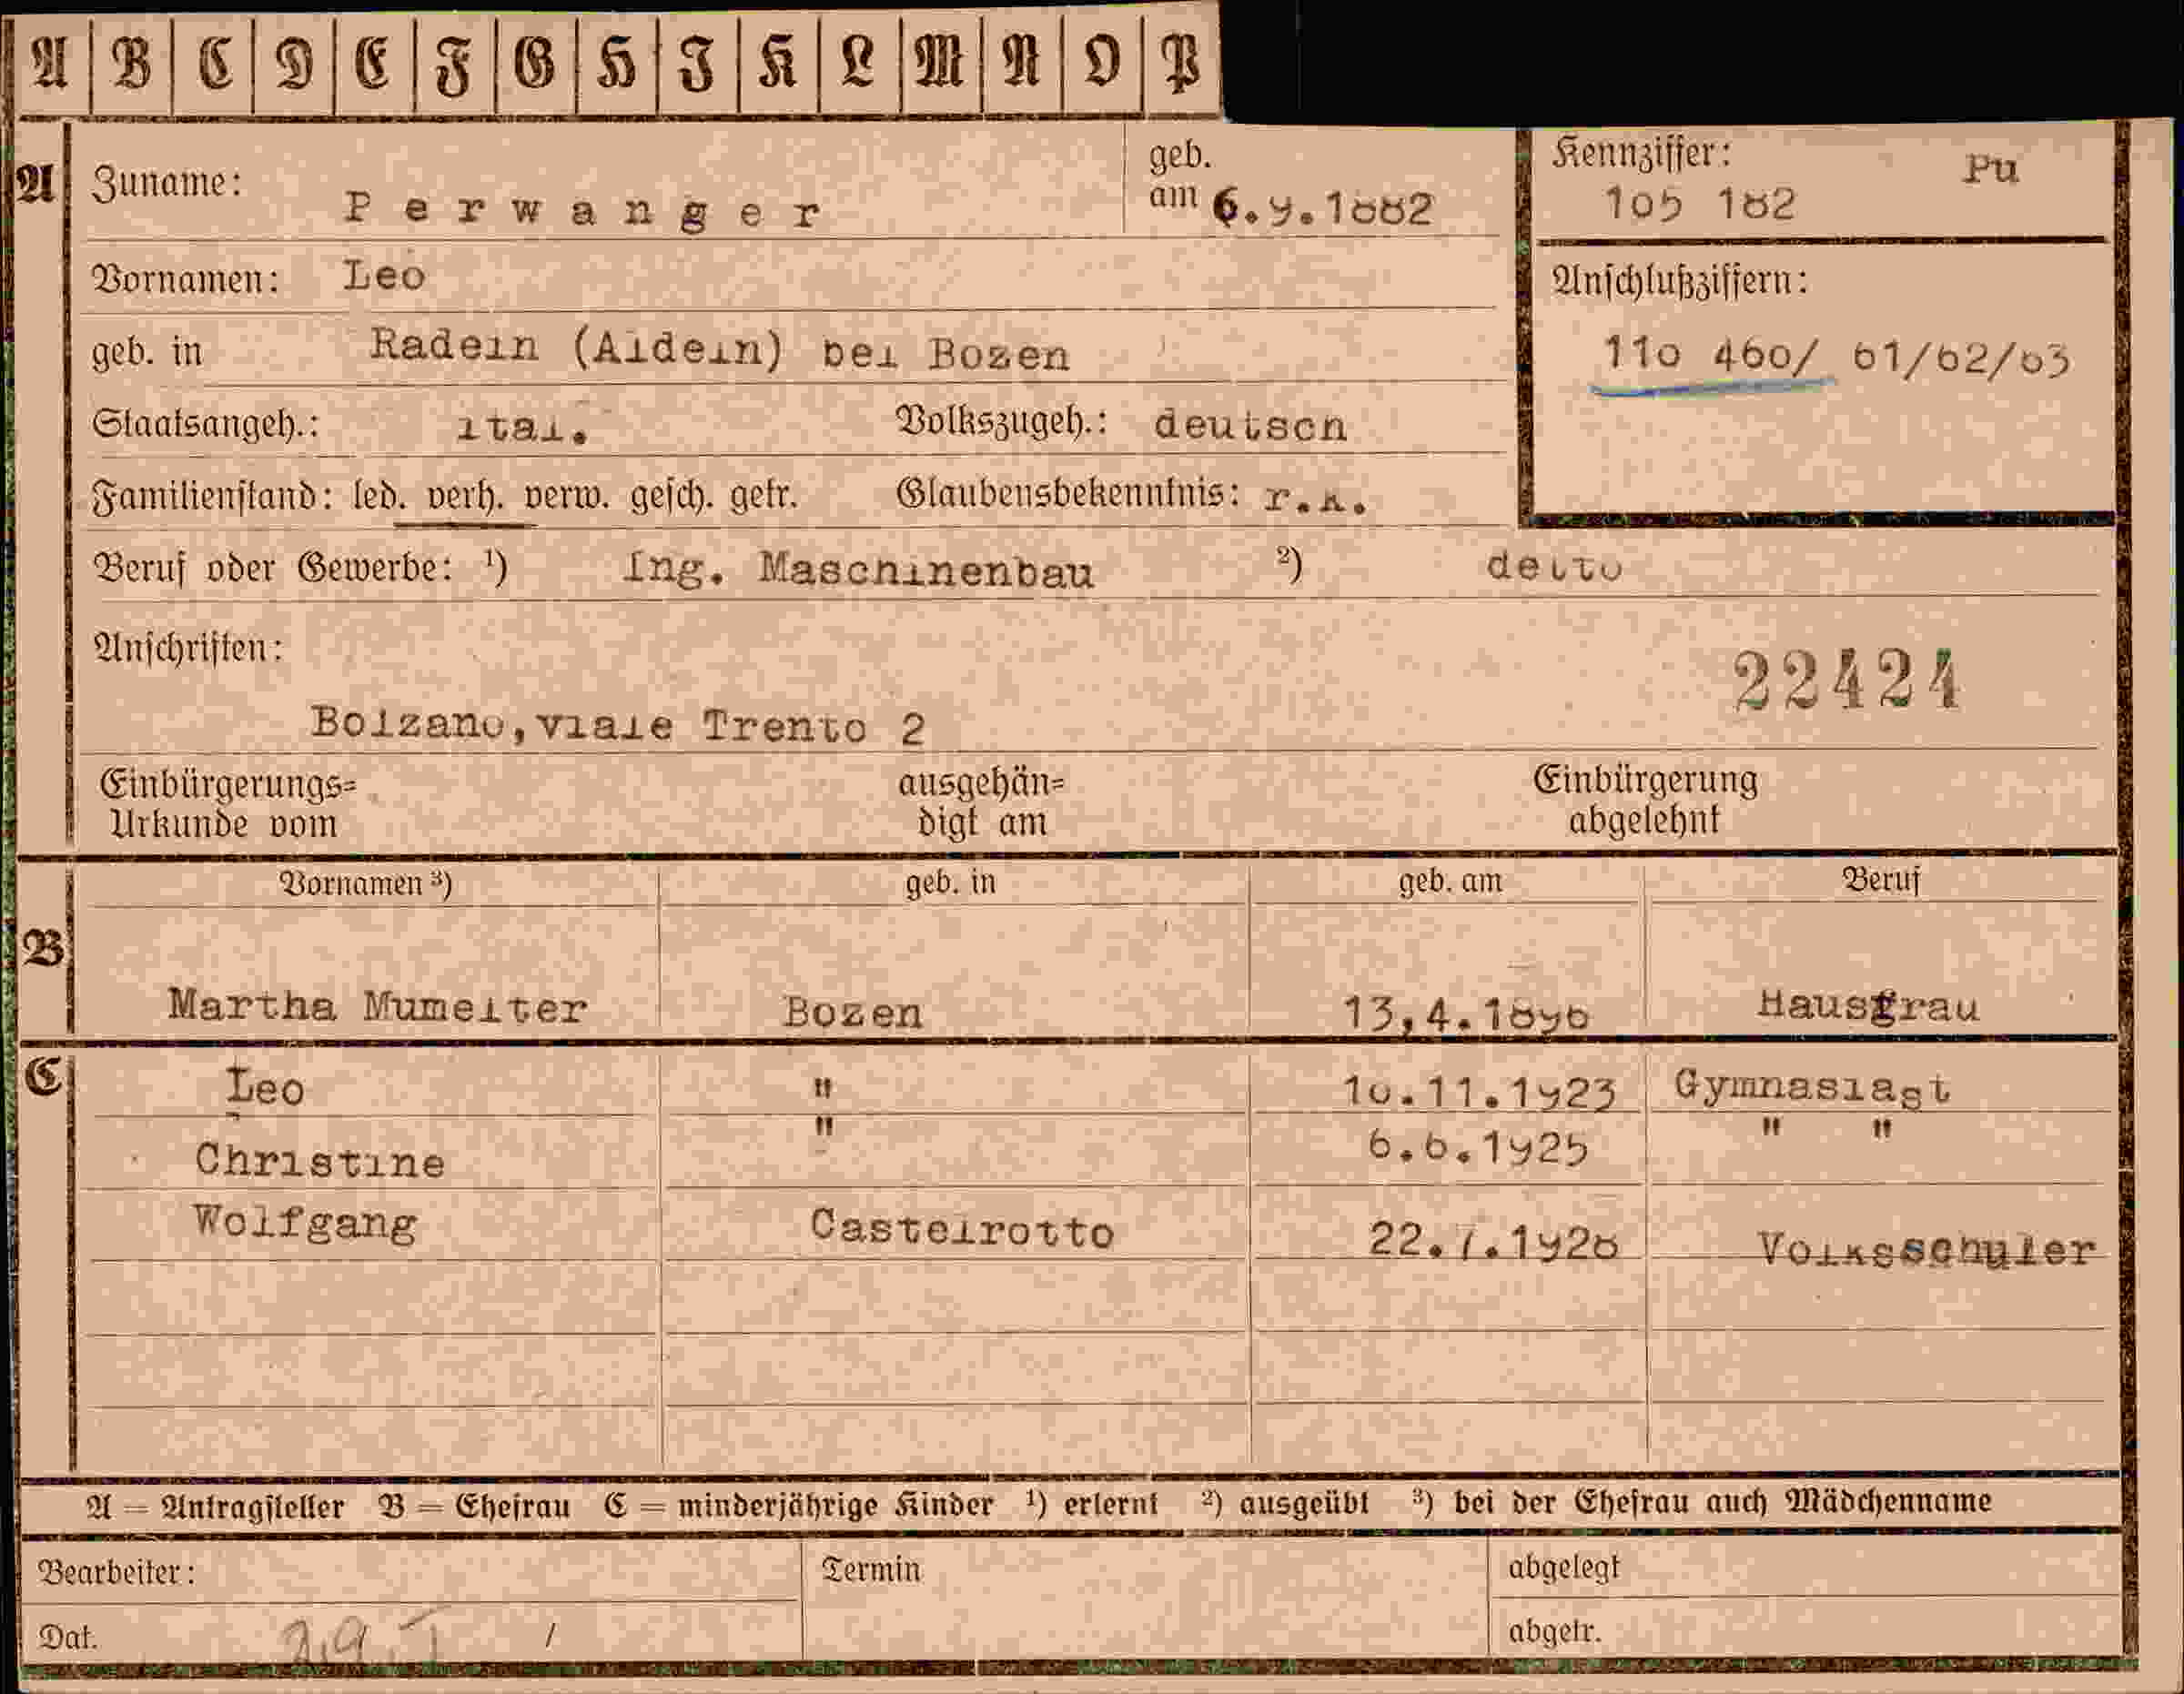 A B C D E F G H I K L M N O P
A Zuname: Perwanger geb. am 6.9.1882 Kennziffer: 105 182 Pu
Vornamen: Leo Anschlußziffern:
geb. in Radein (Aldein) bei Bozen 110 460/ 61/62/63
Staatsangeh.: ital. Volkszugeh.: deutsch
Familienstand: led. verh. verw. gesch. getr. Glaubensbekenntnis: r.k.
Beruf oder Gewerbe: ¹) Ing. Maschinenbau ²) detto
Anschriften: 22424
Bolzano, viale Trento 2
Einbürgerungs= ausgehän= Einbürgerung
Urkunde vom digt am abgelehnt
Vornamen ³) geb. in geb. am Beruf
B Martha Mumelter Bozen 13,4.1896 Hausfrau
C Leo " 10.11.1923 Gymnasiast
Christine " 6.6.1925 " "
Wolfgang Castelrotto 22.7.1928 Volksschuler
A = Antragsteller B = Ehefrau C = minderjährige Kinder ¹) erlernt ²) ausgeübt ³) bei der Ehefrau auch Mädchenname
Bearbeiter: Termin abgelegt
Dat. / abgetr.